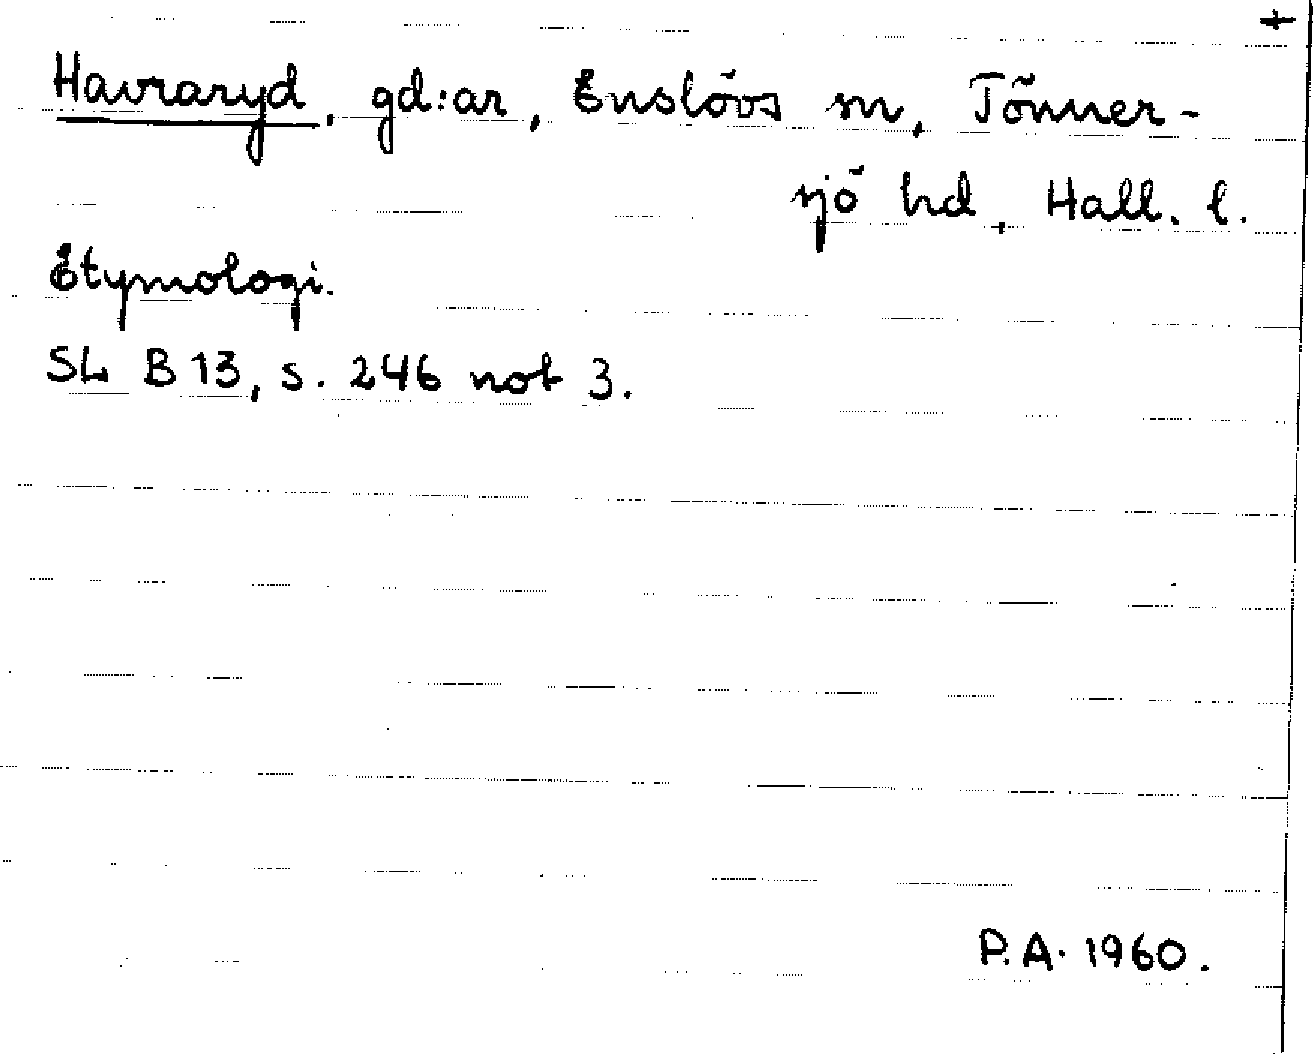 +
Havraryd, gd:ar, Enslövs sn, Tönner-
sjö hd, Hall. l.
Etymologi.
SL B 13, s. 246 not 3.
P.A. 1960.